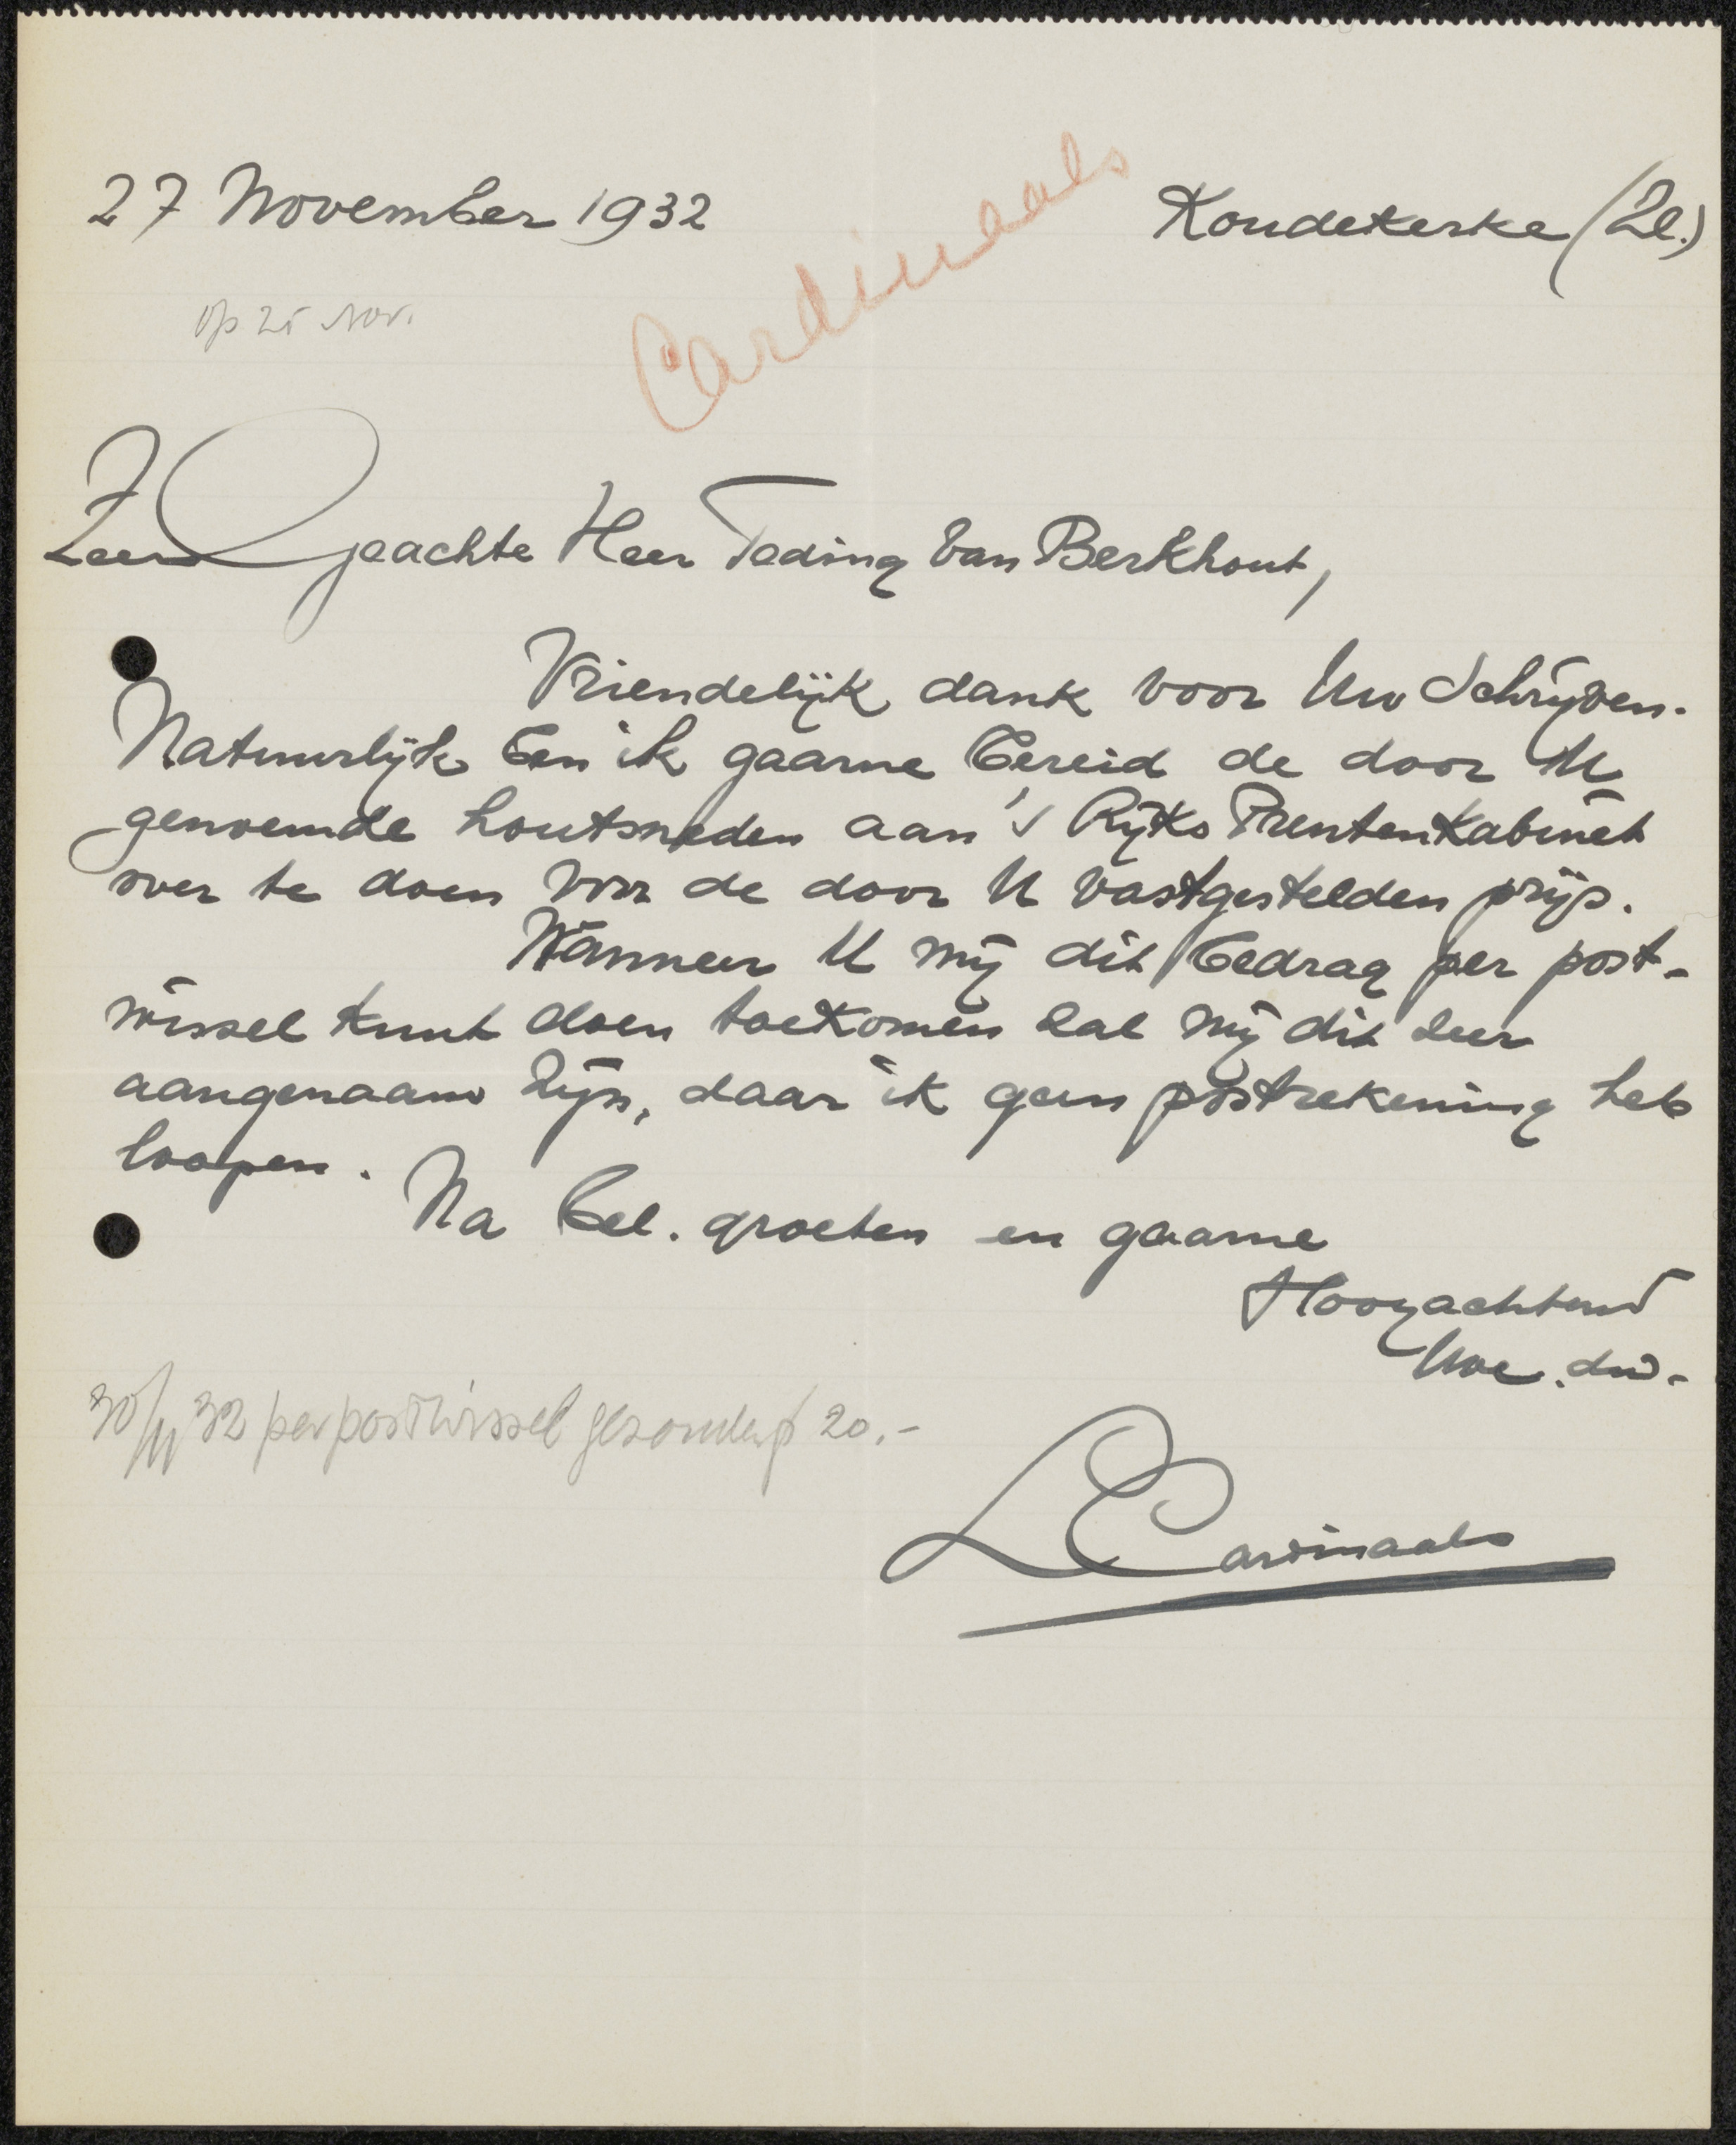 27 November 1932
Koudekerke (Zl.)
Cardinaals
op 25 Nov.
Zeer Geachte Heer Teding van Berkhout,
Vriendelijk dank voor Uw Schrijven.
Natuurlijk ben ik gaarne bereid de door U
genoemde houtsneden aan 's Rijks Prentenkabinet
over te doen voor de door U vastgestelden prijs.
Wanneer U mij dit bedrag per post-
wissel kunt doen toekomen zal mij dit zeer
aangenaam zijn, daar ik geen postrekening heb
loopen.
Na bel. groeten en gaarne
Hoogachtend
Uwe. dw.
30/11 32 per postwissel gezonden f 20.-
L Cardinaals